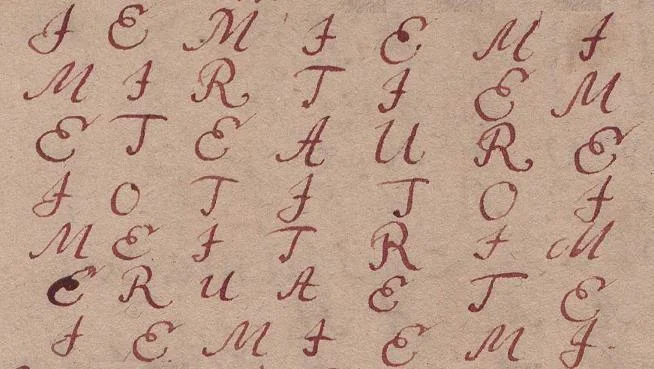 I E M I E M I
M I R T I E M
E T E A U R E
I O T I T O I
M E I T R I M
E R U A E T E
I E M I E M I